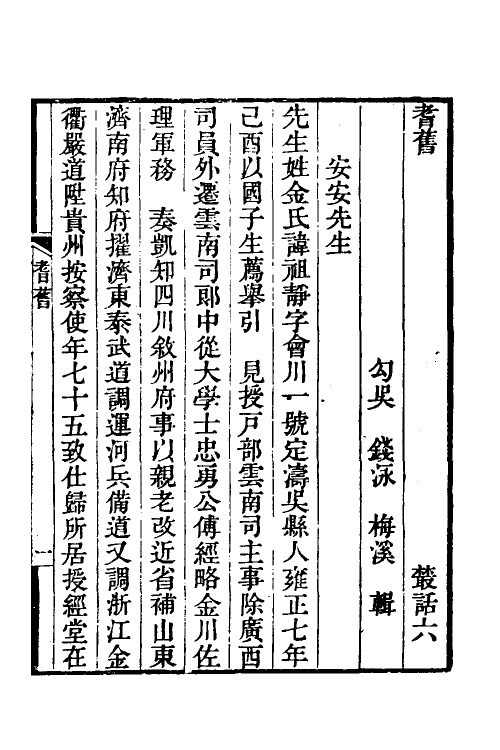 耆舊　叢話六
勾吳　錢泳　梅溪　輯
安安先生
先生姓金氏諱祖靜字會川一號定濤吳縣人雍正七年
己酉以國子生薦舉引　見授戸部雲南司主事除廣西
司員外遷雲南司郎中從大學士忠勇公傅經略金川佐
理軍務　奏凱知四川敘州府事以親老改近省補山東
濟南府知府擢濟東泰武道調運河兵備道又調浙江金
衢嚴道陞貴州按察使年七十五致仕歸所居授經堂在
耆舊
一